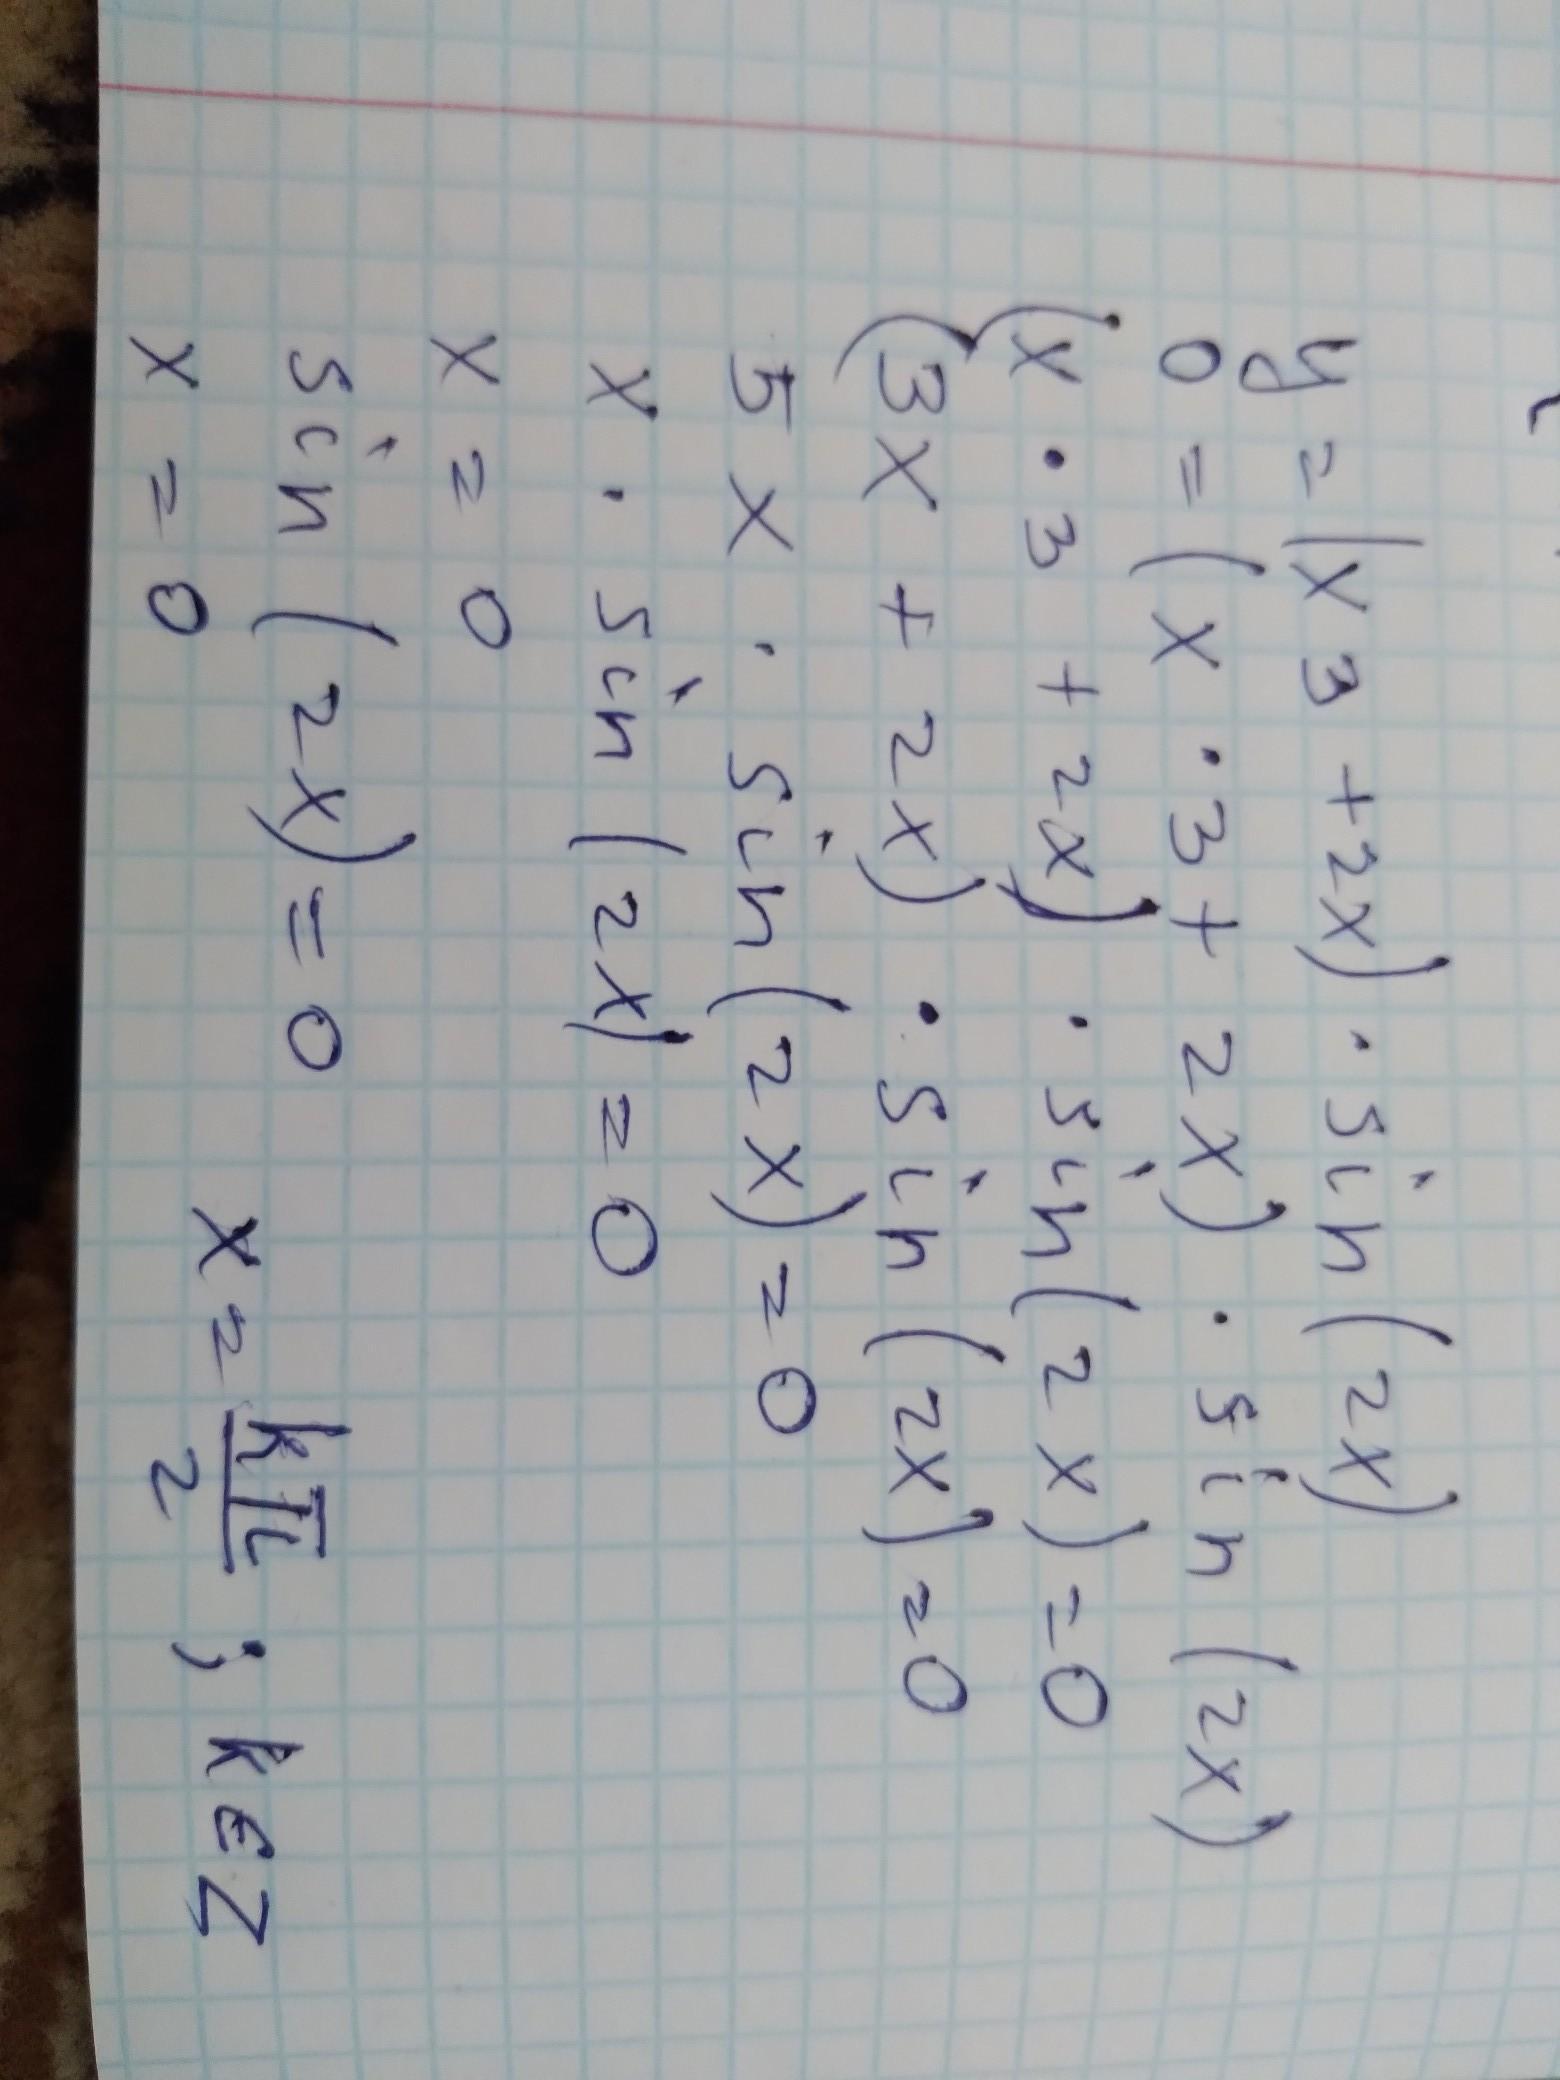 y = (x3 + 2x) · sin(2x)
0 = (x · 3 + 2x) · sin(2x)
(x · 3 + 2x) · sin(2x) = 0
(3x + 2x) · sin(2x) = 0
5x · sin(2x) = 0
x · sin(2x) = 0
x = 0
sin(2x) = 0
x = 0 x = kπ/2 ; k ∈ Z